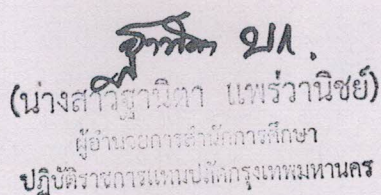 (นางสาวฐานิตา แพร่วานิชย์)
ผู้อำนวยการสำนักการศึกษา
ปฏิบัติราชการแทนปลัดกรุงเทพมหานคร